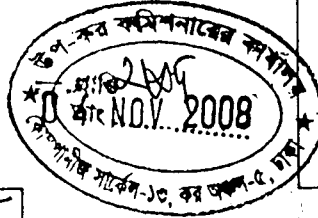 উপ-কর কমিশনারের কার্যালয়
প্রাপ্তি
তাং NOV. 2008
কোম্পানীজ সার্কেল-১৩, কর অঞ্চল-৫, ঢাকা